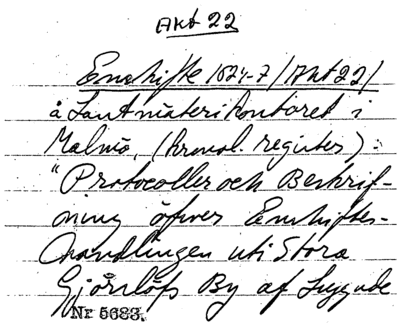 Akt 22
Enskifte 1824-7 (Akt 22)
å Lantmäterikontoret i
Malmö, (kronol. register):
"Protocoller och Beskrif-
ning öfver Enskiftes-
handlingen uti Stora
Gjörslöfs By af Luggude
Nr 5683.